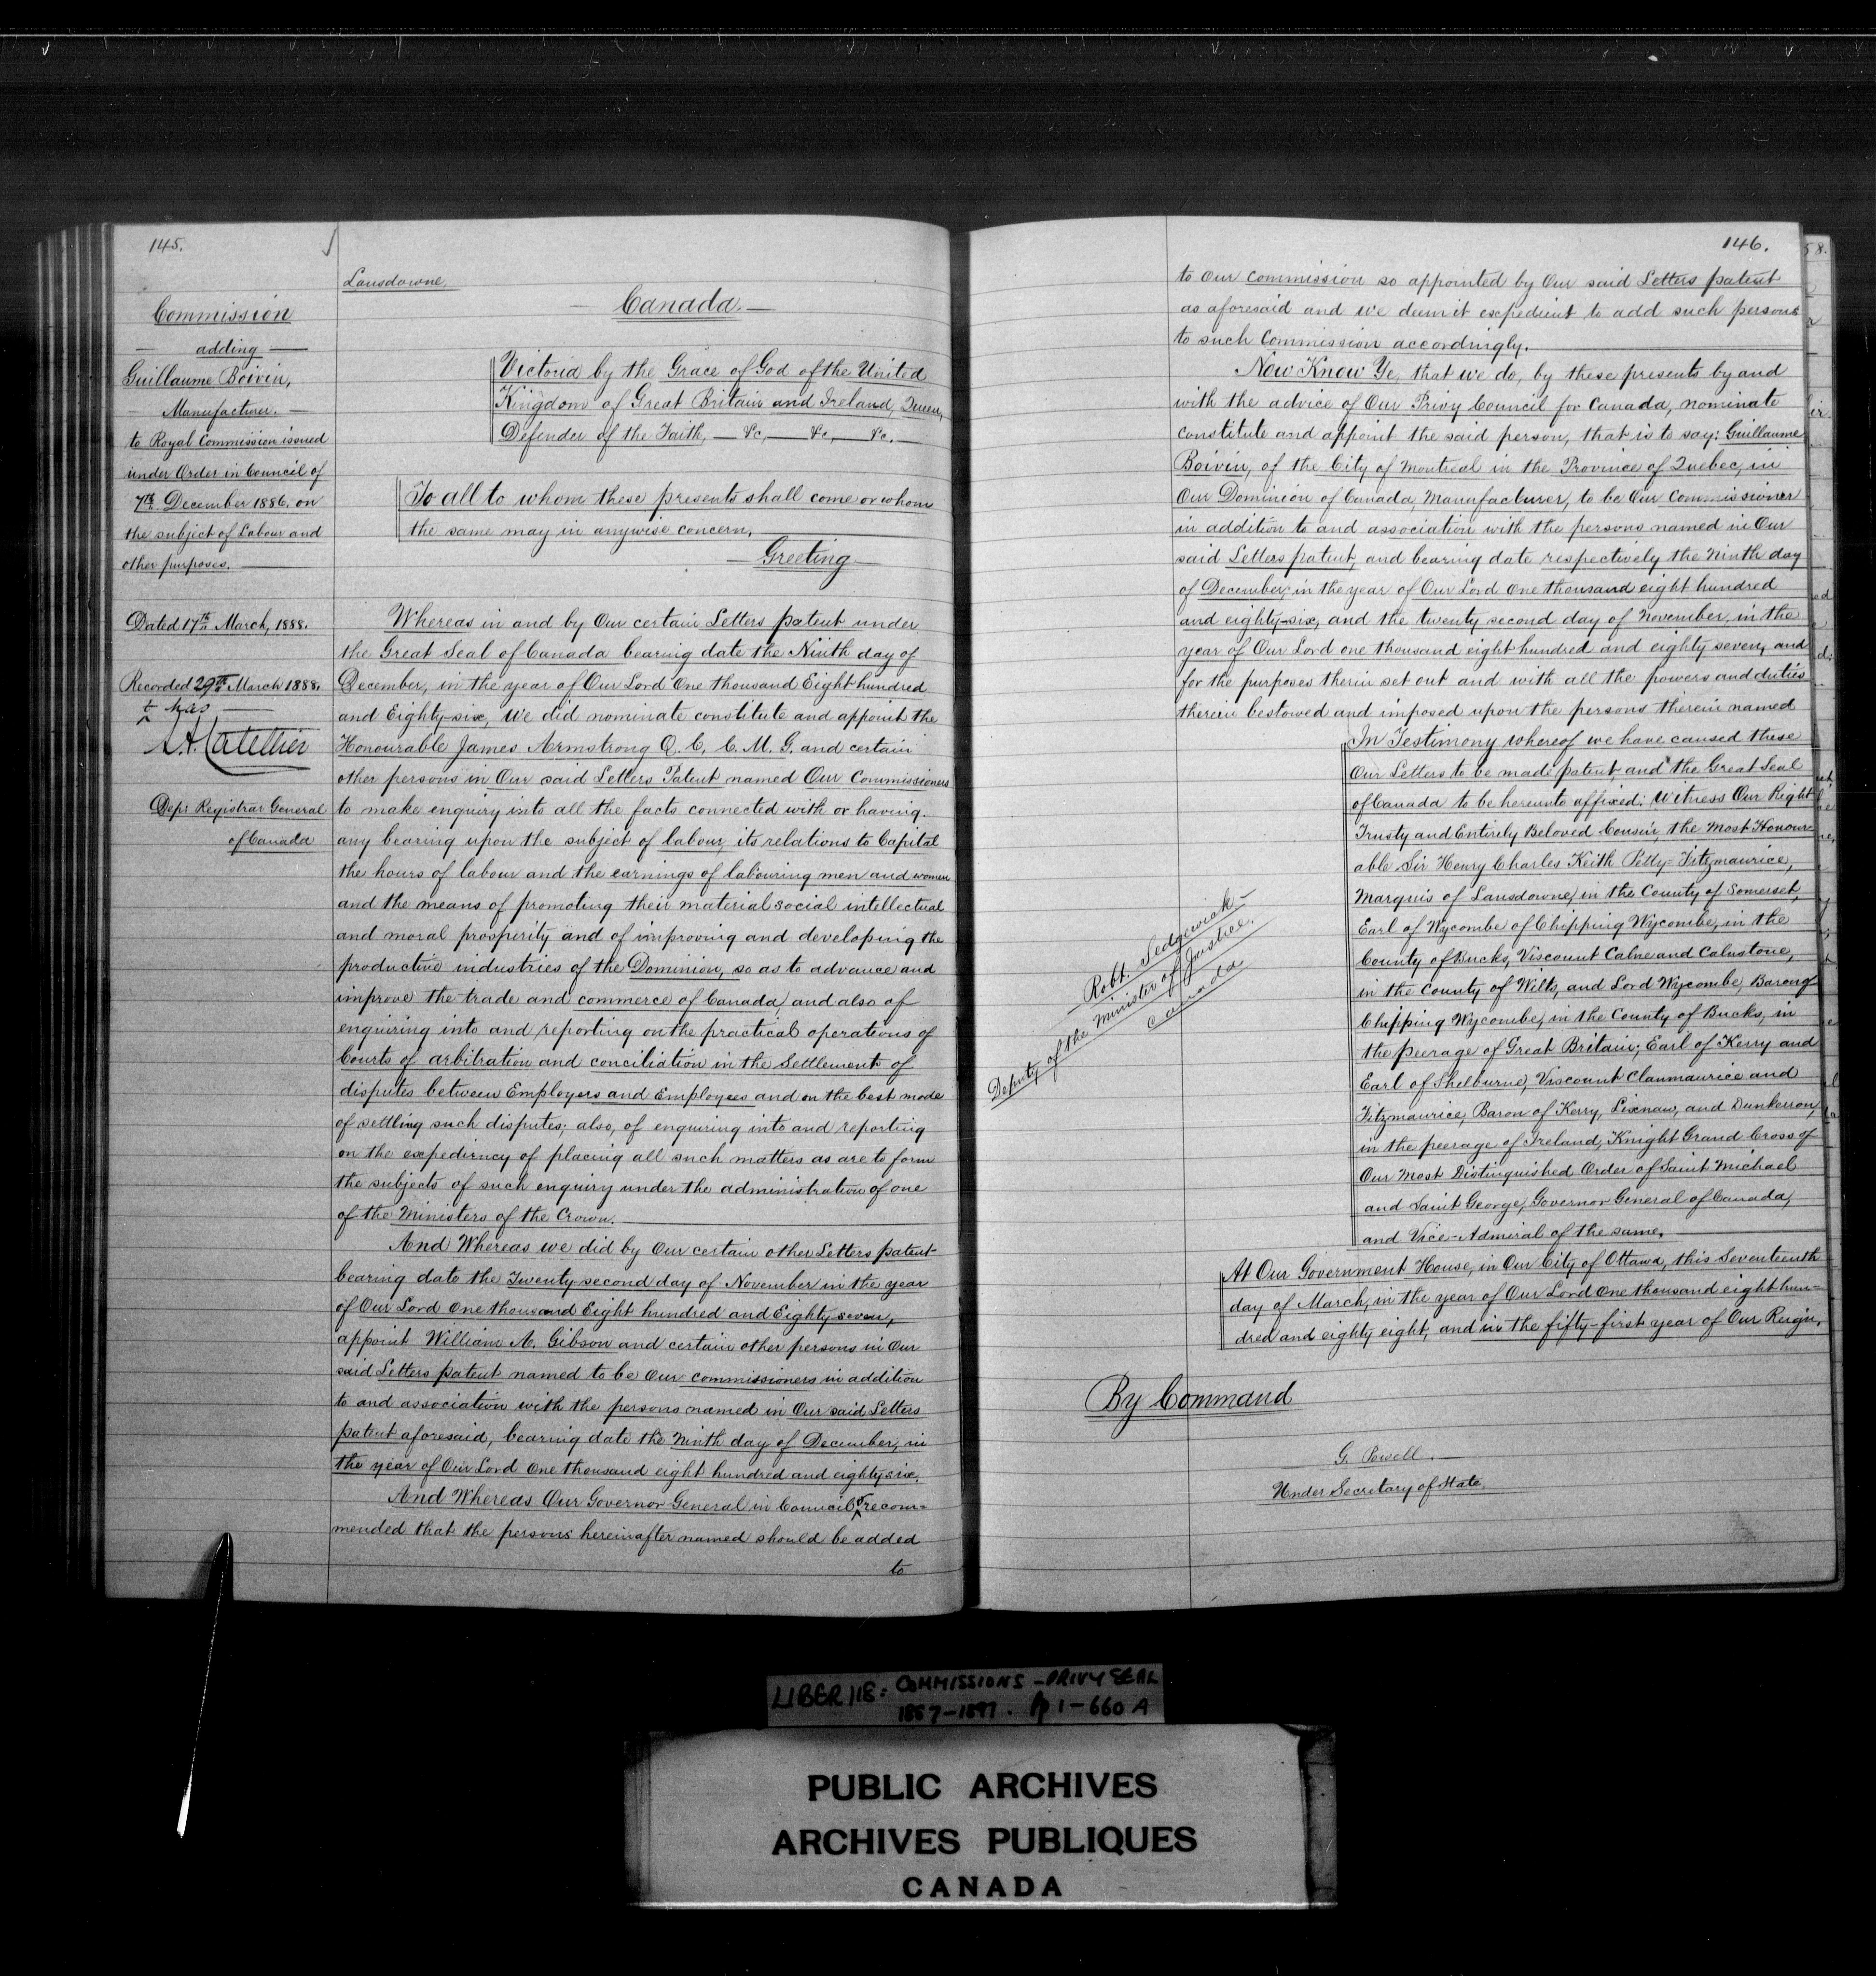 145.
Commission
adding
Guillaume Boivin,
Manufacturer.
to Royal Commission issued
under Order in Council of
7th December 1886. on
the subject of Labour and
other purposes.
Dated 17th March, 1888.
Recorded 29th March 1888.
‸ has
Dep: Registrar General
of Canada
Lansdowne
Canada.
Victoria by the Grace of God of the United
Kingdom of Great Britain and Ireland, Queen,
Defender of the Faith, — &c, — &c, — &c.
To all to whom these presents shall come or whom
the same may in anywise concern,
Greeting
Whereas in and by Our certain Letters patent under
the Great Seal of Canada bearing date the Ninth day of
December, in the year of Our Lord One thousand Eight hundred
and Eighty-six, We did nominate constitute and appoint the
Honourable James Armstrong Q. C, C. M. G. and certain
other persons in Our said Letters Patent named Our Commissioners
to make enquiry into all the facts connected with or having
any bearing upon the subject of labour, its relations to Capital
the hours of labour and the earnings of labouring men and women
and the means of promoting their material social intellectual
and moral prosperity and of improving and developing the
productive industries of the Dominion, so as to advance and
improve the trade and commerce of Canada, and also of
enquiring into and reporting on the practical operations of
Courts of arbitration and conciliation in the Settlement of
disputes between Employers and Employees and on the best mode
of settling such disputes; also, of enquiring into and reporting
on the expediency of placing all such matters as are to form
the subjects of such enquiry under the administration of one
of the Ministers of the Crown.
And Whereas we did by Our certain other Letters patent
bearing date the Twenty-second day of November in the year
of Our Lord One thousand Eight hundred and Eighty seven,
appoint William A. Gibson and certain other persons in Our
said Letters patent named to be Our commissioners in addition
to and association with the persons named in Our said Letters
patent aforesaid, bearing date the Ninth day of December, in
the year of Our Lord One thousand eight hundred and eighty six.
And Whereas Our Governor General in Council ‸ recom=
mended that the persons hereinafter named should be added
to
146.
to Our Commission so appointed by Our said Letters patent
as aforesaid and we deem it expedient to add such persons
to such Commission accordingly.
Now Know Ye, that we do, by these presents by and
with the advice of Our Privy Council for Canada, nominate
constitute and appoint the said person, that is to say: Guillaume
Boivin, of the City of Montreal in the Province of Quebec, in
Our Dominion of Canada, Manufacturer, to be Our Commissioner
in addition to and association with the persons named in Our
said Letters patent, and bearing date respectively the Ninth day
of December, in the year of Our Lord One thousand eight hundred
and eighty-six, and the twenty second day of November, in the
year of Our Lord one thousand eight hundred and eighty seven, and
for the purposes therein set out and with all the powers and duties
therein bestowed and imposed upon the persons therein named
In Testimony whereof we have caused these
Our Letters to be made patent and the Great Seal
of Canada to be hereunto affixed: Witness Our Right
Trusty and Entirely Beloved Cousin, the Most Honour=
able Sir Henry Charles Keith Petty=Fitzmaurice,
Marquis of Lansdowne, in the County of Somerset,
Earl of Wycombe of Chipping Wycombe, in the
County of Bucks, Viscount Calne and Calnstone,
in the County of Wilts, and Lord Wycombe, Baron of
Chipping Wycombe, in the County of Bucks, in
the peerage of Great Britain; Earl of Kerry and
Earl of Shelburne, Viscount Clanmaurice and
Fitzmaurice, Baron of Kerry, Lixnaw, and Dunkerron,
in the peerage of Ireland, Knight Grand Cross of
Our Most Distinguished Order of Saint Michael
and Saint George, Governor General of Canada,
and Vice-Admiral of the same,
Robt. Sedgewick
Deputy of the Minister of Justice.
Canada
At Our Government House, in Our City of Ottawa, this Seventeenth
day of March, in the year of Our Lord One thousand eight hun=
dred and eighty eight, and in the fifty-first year of Our Reign.
By Command
G. Powell.
Under Secretary of State.
58.
LIBER 118: COMMISSIONS - PRIVY SEAL
1887-1897. Pp 1-660 A
PUBLIC ARCHIVES
ARCHIVES PUBLIQUES
CANADA